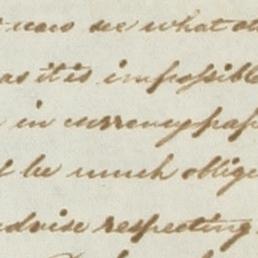 now see what
as it is impossible
in currency
be much oblige
advise respecting